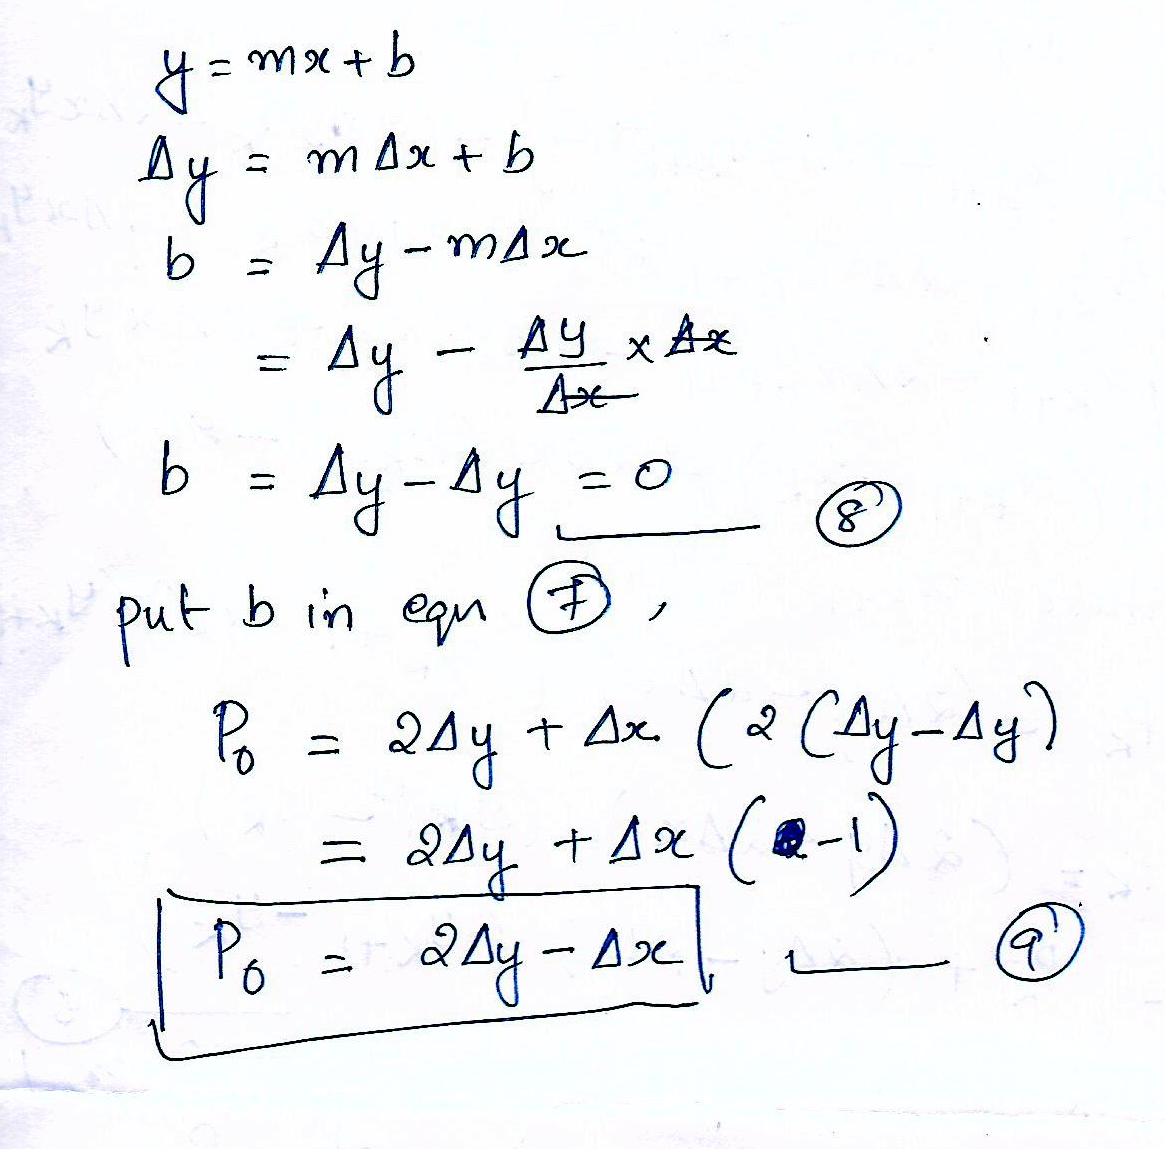 y = mx + b
Δy = mΔx + b
b = Δy - mΔx
= Δy - Δy/Δx × Δx
b = Δy - Δy = 0 ⑧
put b in equ ⑦,
P₀ = 2Δy + Δx (2(Δy-Δy)
= 2Δy + Δx (-1)
P₀ = 2Δy - Δx ⑨